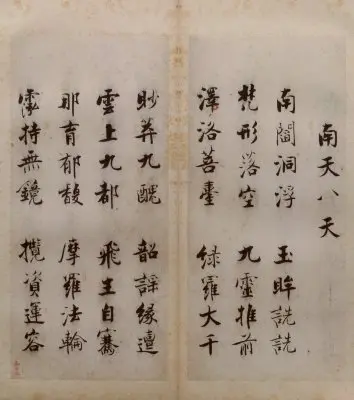 南天八天
南閻洞浮 玉眸詵詵
梵形落空 九靈推前
澤洛菩臺 緑羅大千
眇莽九醜 韶謡緣邅
雲上九都 飛生自騫
那育郁馥 摩羅法輪
霐持無鏡 攬資運容